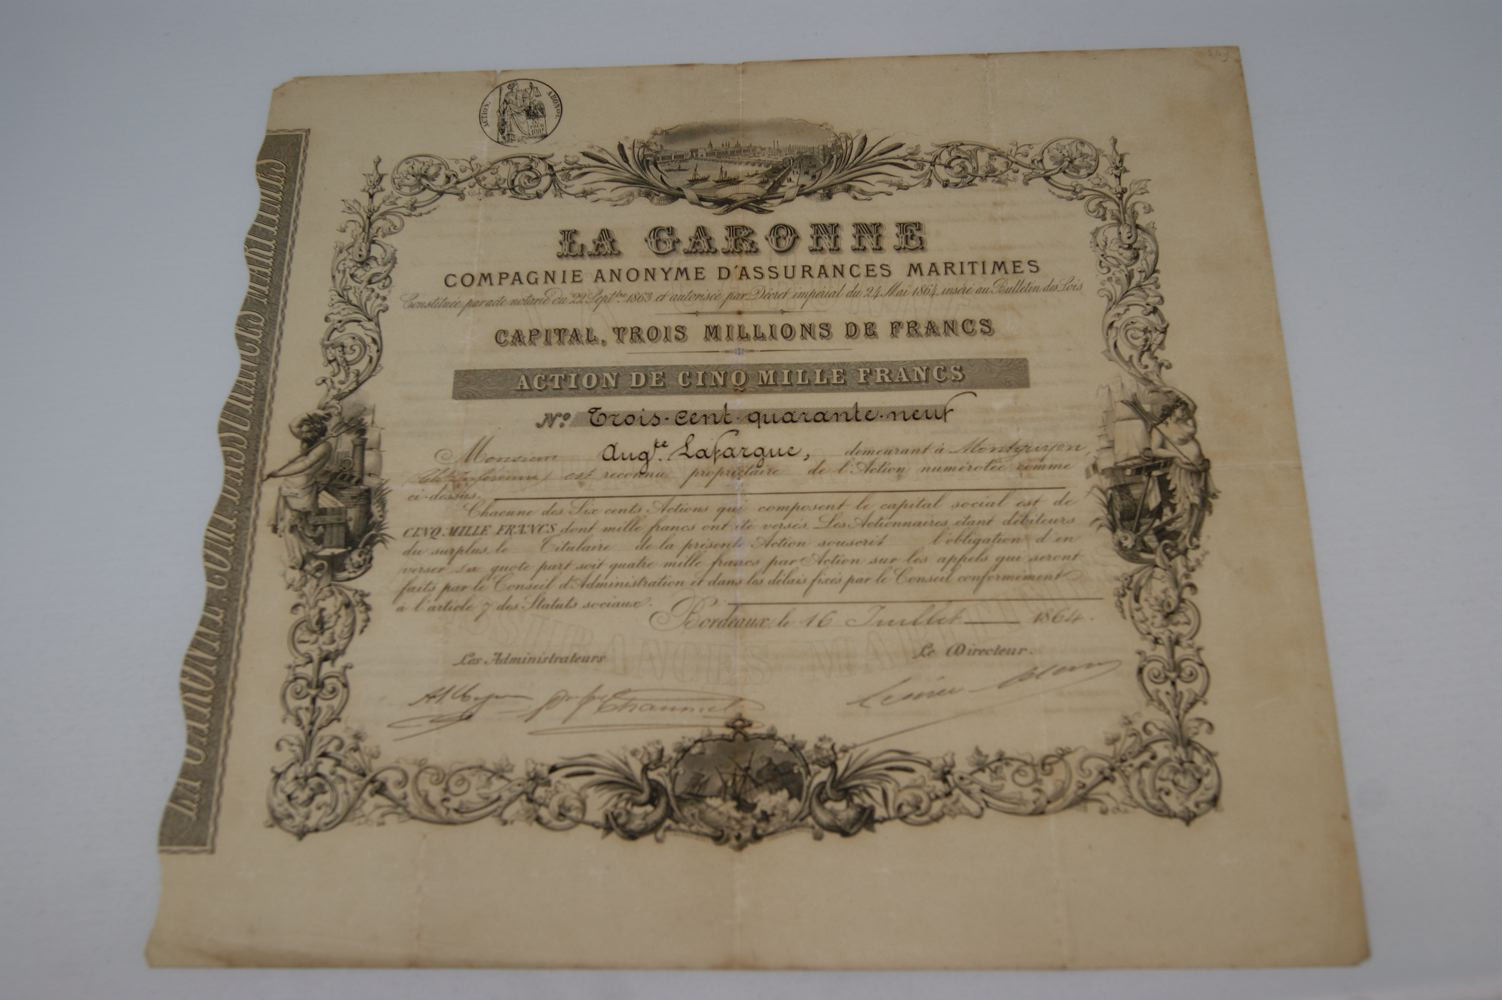 ACTION ABONNÉE
LA GARONNE
COMPAGNIE ANONYME D'ASSURANCES MARITIMES
Constituée par acte notarié du 22 Septbre 1863 et autorisée par Décret impérial du 24 Mai 1864 inséré au Bulletin des Lois
CAPITAL, TROIS MILLIONS DE FRANCS
ACTION DE CINQ MILLE FRANCS
No. Trois-cent-quarante-neuf
Monsieur Augte. Lafargue, demeurant à Montguyon,
Chte Inférieure, est reconnu propriétaire de l'Action numérotée comme
ci-dessus.
Chacune des Six cents Actions qui composent le capital social est de
CINQ MILLE FRANCS dont mille francs ont été versés. Les Actionnaires étant débiteurs
du surplus, le Titulaire de la présente Action souscrit l'obligation d'en
verser sa quote part soit quatre mille francs par Action sur les appels qui seront
faits par le Conseil d'Administration et dans les délais fixés par le Conseil conformément
à l'article 7 des Statuts sociaux.
Bordeaux, le 16 Juillet 1864.
Les Administrateurs
Le Directeur.